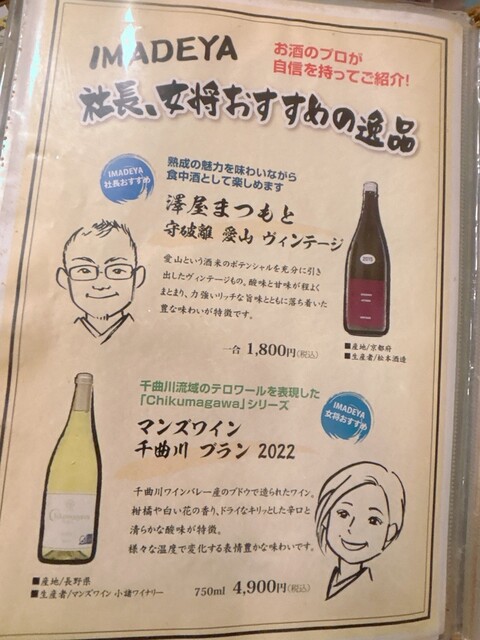 IMADEYA
お酒のプロが
自信を持ってご紹介!
社長、女将おすすめの逸品
IMADEYA
社長おすすめ
熟成の魅力を味わいながら
食中酒として楽しめます
澤屋まつもと
守破離 愛山 ヴィンテージ
愛山という酒米のポテンシャルを充分に引き
出したヴィンテージもの。酸味と甘味が程よく
まとまり、力強いリッチな旨味とともに落ち着いた
豊な味わいが特徴です。
一合 1,800円(税込)
■産地/京都府
■生産者/松本酒造
千曲川流域のテロワールを表現した
「Chikumagawa」シリーズ
IMADEYA
女将おすすめ
マンズワイン
千曲川 ブラン 2022
千曲川ワインバレー産のブドウで造られたワイン。
柑橘や白い花の香り、ドライなキリッとした辛口と
清らかな酸味が特徴。
様々な温度で変化する表情豊かな味わいです。
Chikumagawa
■産地/長野県
■生産者/マンズワイン 小諸ワイナリー
750ml 4,900円(税込)